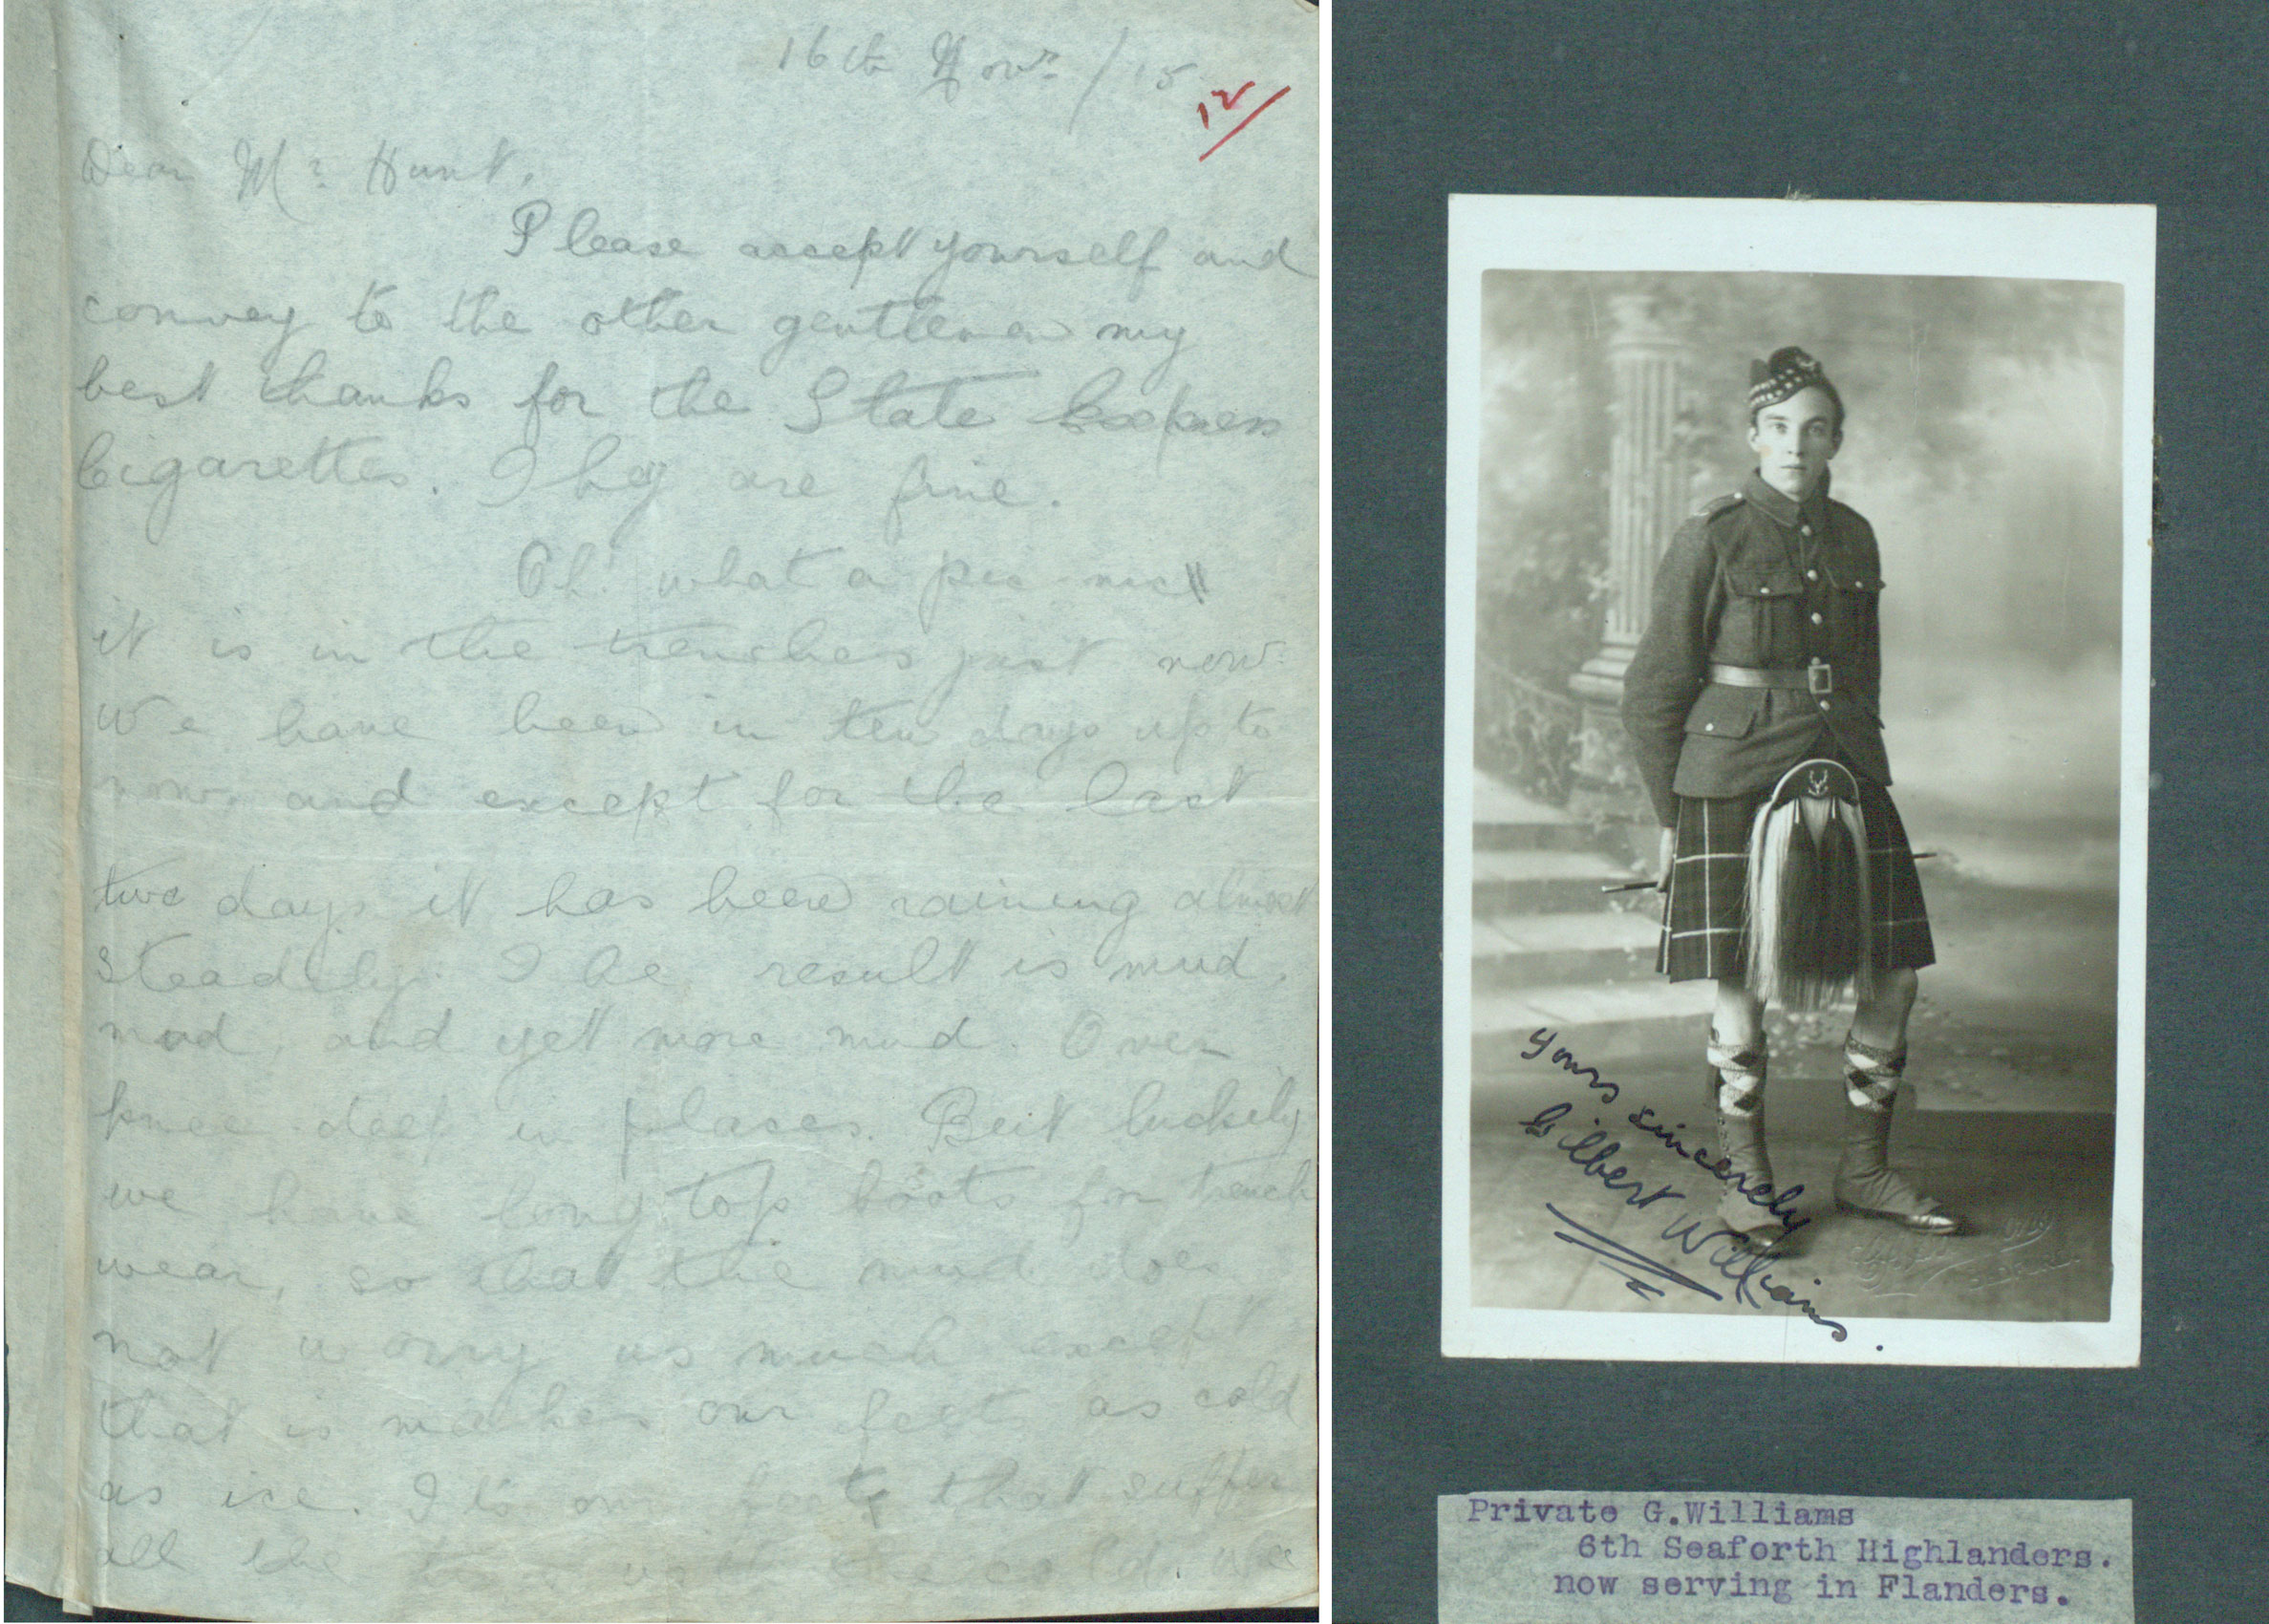 16th Novr / 15
12
Dear Mr Hunt,
Please accept yourself and
convey to the other gentlemen my
best thanks for the State Express
Cigarettes. They are fine.
Oh! what a pic-nic
it is in the trenches just now.
We have been in ten days up to
now, and except for the last
two days it has been raining almost
steadily. The result is mud,
mud, and yet more mud. Over
knee-deep in places. But luckily
we have long top boots for trench
wear, so that the mud does
not worry us much except
that is makes our feets as cold
as ice. Its our that suffer
all the with the cold. We
yours sincerely
Gilbert Williams.
Private G.Williams
6th Seaforth Highlanders.
now serving in Flanders.